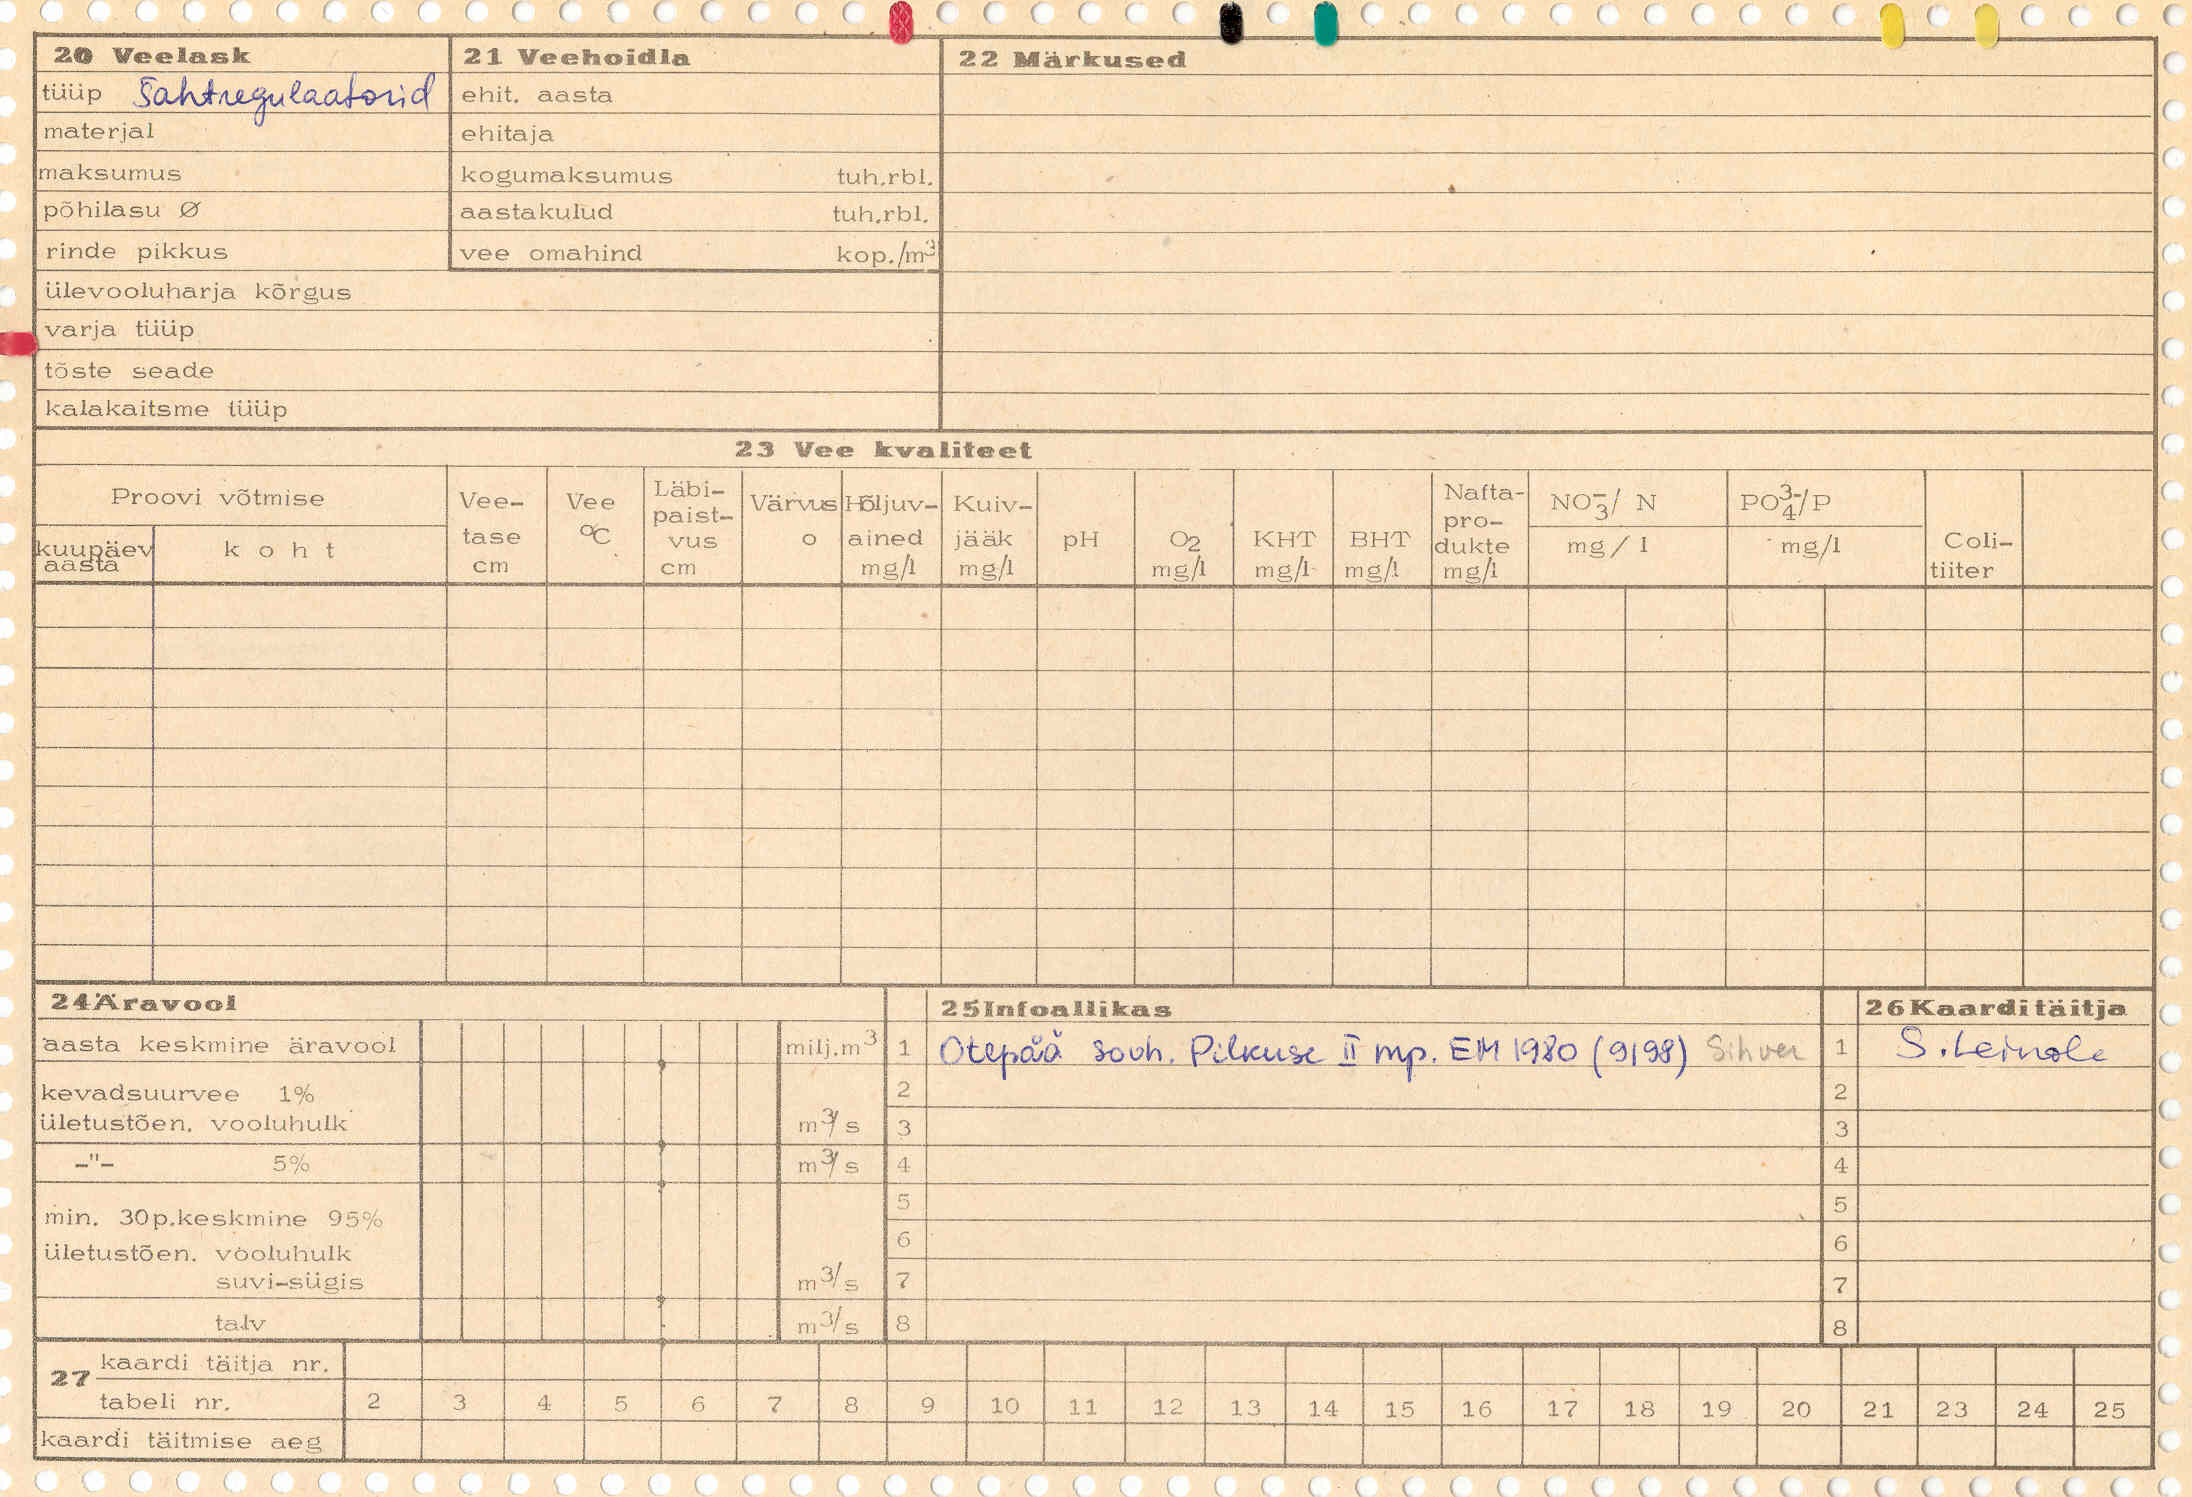 20 Veelask
tüüp Šahtregulaatorid
materjal
maksumus
põhilasu Ø
rinde pikkus
ülevooluharja kõrgus
varja tüüp
tõste seade
kalakaitsme tüüp
21 Veehoidla
ehit. aasta
ehitaja
kogumaksumus tuh.rbl.
aastakulud tuh.rbl.
vee omahind kop./m³
22 Märkused
23 Vee kvaliteet
Proovi võtmise
kuupäev
aasta
koht
Vee-
tase
cm
Vee
°C
Läbi-
paist-
vus
cm
Värvus
o
Hõljuv-
ained
mg/l
Kuiv-
jääk
mg/l
pH
O2
mg/l
KHT
mg/l
BHT
mg/l
Nafta-
pro-
dukte
mg/l
NO3⁻/ N
mg / l
PO4³⁻/P
mg/l
Coli-
tiiter
24 Äravool
aasta keskmine äravool milj.m³
kevadsuurvee 1%
ületustõen. vooluhulk m³/s
-"- 5% m³/s
min. 30p.keskmine 95%
ületustõen. vooluhulk
suvi-sügis m³/s
talv m³/s
25 Infoallikas
1 Otepää sovh. Pilkuse II mp. EM 1980 (9198) Sihver
2
3
4
5
6
7
8
26 Kaardi täitja
1 S.
2
3
4
5
6
7
8
27
kaardi täitja nr.
tabeli nr. 2 3 4 5 6 7 8 9 10 11 12 13 14 15 16 17 18 19 20 21 23 24 25
kaardi täitmise aeg